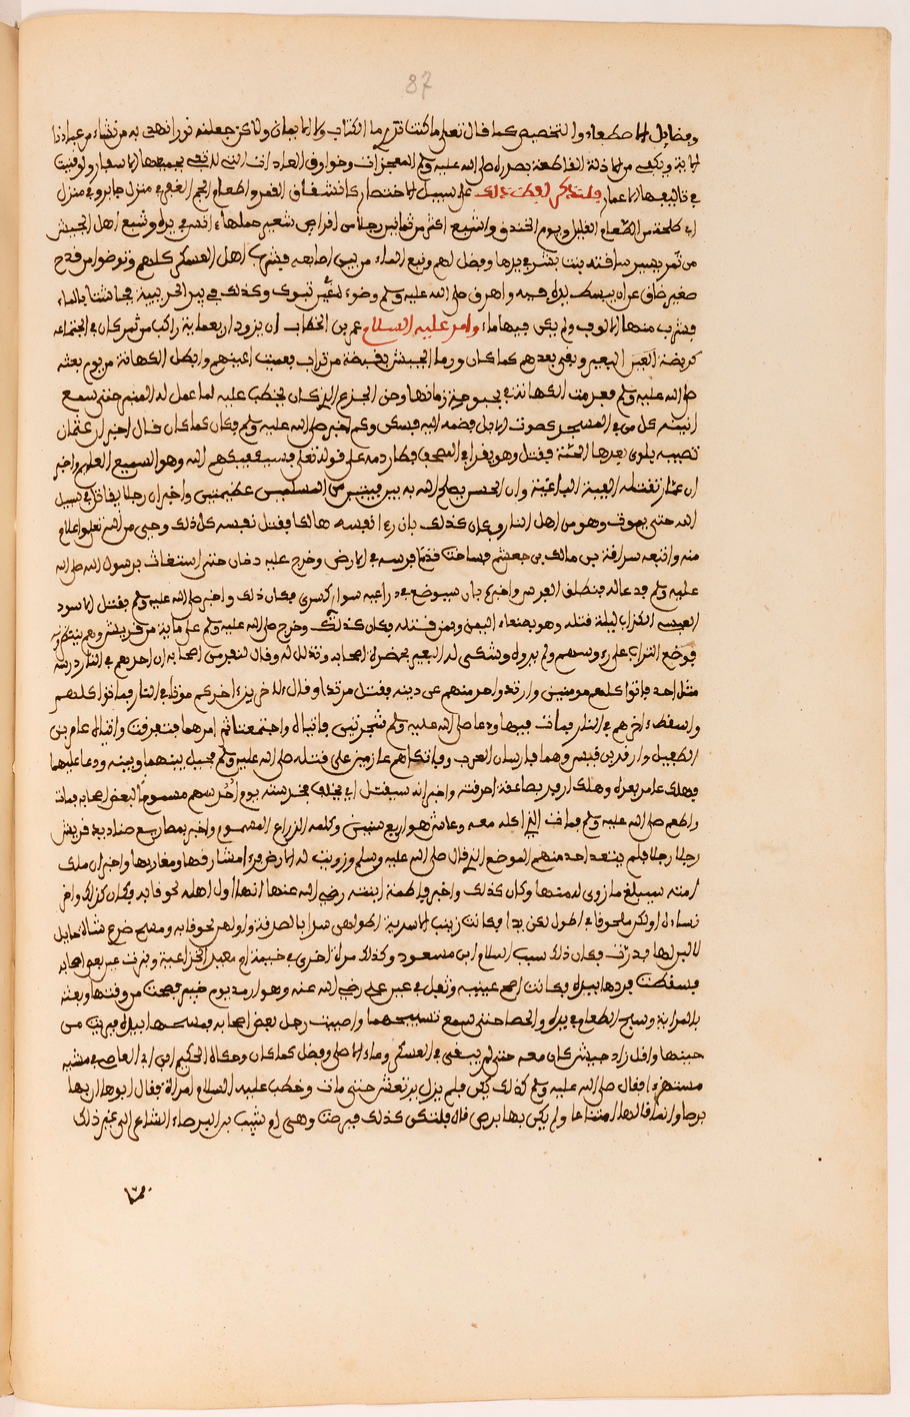 87
وفضايل الاصطفاء والتخصيص كما قال تعلى ما كنت تدرى ما الكتاب ولا الايمان ولاكن جعلنه نورا نهدى به من نشاء من عبادنا
الاية ويكفى من الادلة القاطعة بصدره صلى الله عليه وسلم المعجزات وخوارق العادات التى بجميعها الاسفار ولو فنيت
فى تاليفها الاعمار فلنذكر من ذلك على سبيل الاختصار كانشقاق القمر واطعام الجم الغفير فى منزل جابر وفى منزل
ابى طلحة من الطعام القليل ويوم الخندق واشبع اكثر من ثمانين رجلا من اقراص شعير حملها انس فى يده وشبع اهل الجيش
من تمر يسير ساقته بنت بشر فى يدها وفضل لهم ونبع الماء من بين اصابعه فشربه اهل العسكر كلهم وتوضوا من قدح
صغير ضاق عن ان يبسط يده فيه واهرق صلى الله عليه وسلم وضوءه فى عين تبوك وكذلك فى بير الحديبية فجاشتا بالماء
فشرب منها الالوف ولم يكن فيها ماء وامر عليه السلام عمر بن الخطاب ان يزود اربعماية راكب من تمر كان فى اجتماعه
كربضة البعير وبقى بعدهم كما كان ورما الجيش بقبضة من تراب فعميت اعينهم وابطل الكهانة من يوم بعثه
صلى الله عليه وسلم فعدمت الكهانة فى بحبوحة زمانها وحن الجذع الذى كان يخطب عليه لما عمل له المنبر حتى سمع
انينه كل من فى المسجد كصوت الابل فضمه اليه فسكن وكم اخبر صلى الله عليه وسلم فكان كما كان قال اخبر ان عثمان
تصيبه بلوى بعدها الجنة فقتل وهو يقرا فى المصحف فطار دمه على قوله تعلى فسيكفيكهم الله وهو السميع العليم واخبر
ان عمار تقتله الفية الباغية وان الحسن يصلح الله به بين فيتين من المسلمين عظيمتين واخبر ان رجلا يقاتل فى سبيل
الله حتى يموت وهو من اهل النار وكان كذلك بان رءا نفسه هالكا فقتل نفسه كل ذلك وحى من الله تعلى واعلام
منه واتبعه سراقة بن مالك بن جعشم فساخت قدما فرسه فى الارض وخرج عليه دخان حتى استغاث برسول الله صلى الله
عليه وسلم فدعا له فينطلق الفرس واخبره بان سيوضع فى ذراعيه سوارا كسرى فكان ذلك واخبر صلى الله عليه وسلم بقتل الاسود
العنسى الكذاب ليلة قتله وهو بصنعاء اليمن وبمن قتله فكان كذلك وخرج صلى الله عليه وسلم على ماية من قريش وهم ينتظرونه
فوضع التراب على رءوسهم ولم يروه وشكى له البعير بحضرة اصحابه وتذلل له وقال لنفر من اصحابه ان احدهم فى النار درسه
مثل احد فماتوا كلهم مومنين وارتد واحد منهم عن دينه فقتل مرتدا وقال لاخرين اخركم موتا فى النار فماتوا كلهم
واسقط اخرهم فى النار فمات فيها ودعا صلى الله عليه وسلم شجرتين فاتياه واجتمعتا ثم امرهما فتفرقتا واتياه عامر بن
الطفيل واربد بن قيس وهما فارسان العرب وفاتكاهم عازمين على قتله صلى الله عليه وسلم فحيل بينهما وبينه ودعا عليهما
فهلك عامر بغدة وهلك اربد بصاعقة احرقته واخبر انه سيقتل ابى بن خلف فخدشه يوم احد واطعم السم مسموما لبعض اصحابه فمات
واطعم صلى الله عليه وسلم فمات الذى اكله معه وعاش هو اربع سنين وكلمه الذراع المسموم واخبر بمصارع صناديد قريش
رجلا رجلا فلم يتعد احد منهم الموضع الذى قال صلى الله عليه وسلم وزويت له الارض فرءا مشارقها ومغاربها واخبر ان ملك
امته سيبلغ ما زوى له منها وكان كذلك واخبر فاطمة ابنته رضى الله عنها انها اول اهله لحوقا به وكان كذلك واخبر
نساءه اولكن لحوقا بى اطولكن يدا فكانت زينب الاسدية اطولهن يدا بالصدقة واولهن لحوقا به ومسح ضرع شاة حايل
لا لبن لها فدرت فكان ذلك سبب اسلام ابن مسعود وكذلك مرة اخرى فى خيمة ام معبد الخزاعية وندرت عين بعض اصحابه
فسقطت فردها بيده فكانت اصح عينيه وتفل فى عين على رضى الله عنه وهو ارمد يوم خيبر فصحت من وقتها وبعثه
بالراية وسبح الطعام فى يده والحصا حتى سمع تسبيحهما واصيبت رجل بعض اصحابه فمسحها بيده فبريت من
حينها وقل زاد جيش كان معه حتى لم يبقى فى العسكر وماء الا صلى وفضل كما كان وحكاه الحكيم ابن ابى العاصى فى مشيه
مستهزءا فقال صلى الله عليه وسلم كذلك كن فلم يزل يرتعش حتى مات وخطب عليه السلام امراة فقال ابوها ان بها
برصا وانما قالها امتناعا ولم يكن بها برص فقال فلتكن كذلك فبرصت وهى ام شبيب بن البرصاء الشاعر الى غير ذلك